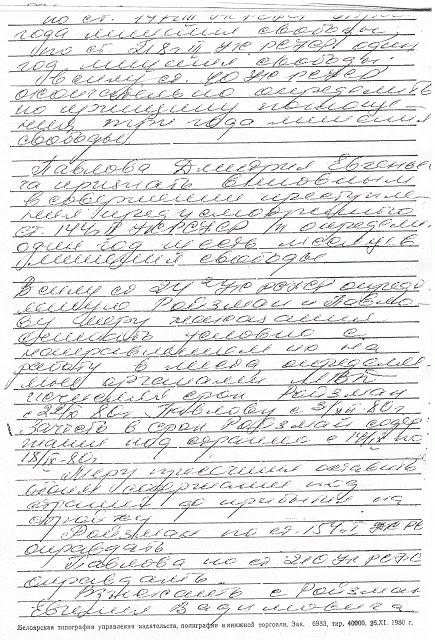 по ст. 144
года лишения свободы,
По ст. 218 ч II УК РСФСР один
год лишения свободы.
В силу ст. 40 УК РСФСР
окончательно определить
по принципу поглоще-
ния, три года лишения
свободы.
Павлова Дмитрия Евгенье-
ча признать виновным
в совершении преступле-
ния предусмотренного
ст. 144 ч II УК РСФСР и определ.
один год шесть месяцев
лишения свободы
В силу ст 24-2 УК РСФСР опреде
ленную Ройзман и Павло-
ву меру наказания
считать условно с
направлением их на
работу в места определяе-
мые органами МВД
исчисляя срок Ройзман
80г. Павлову с 80г
Зачесть в срок Ройзман содер
жание под стражей с по
18/IX-80г
Меру пресечения оставить
обоим содержание под
стражей до прибытия на
стройку
Ройзман по ст. 154 ч I УК РС
оправдать
Павлова по ст 210 УК РСФС
оправдать.
Взыскать с Ройзман
Евгения Вадимовича
Белоярская типография управления издательств, полиграфии и книжной торговли. Зак. 6983, тир. 40000, 26.XI. 1980 г.